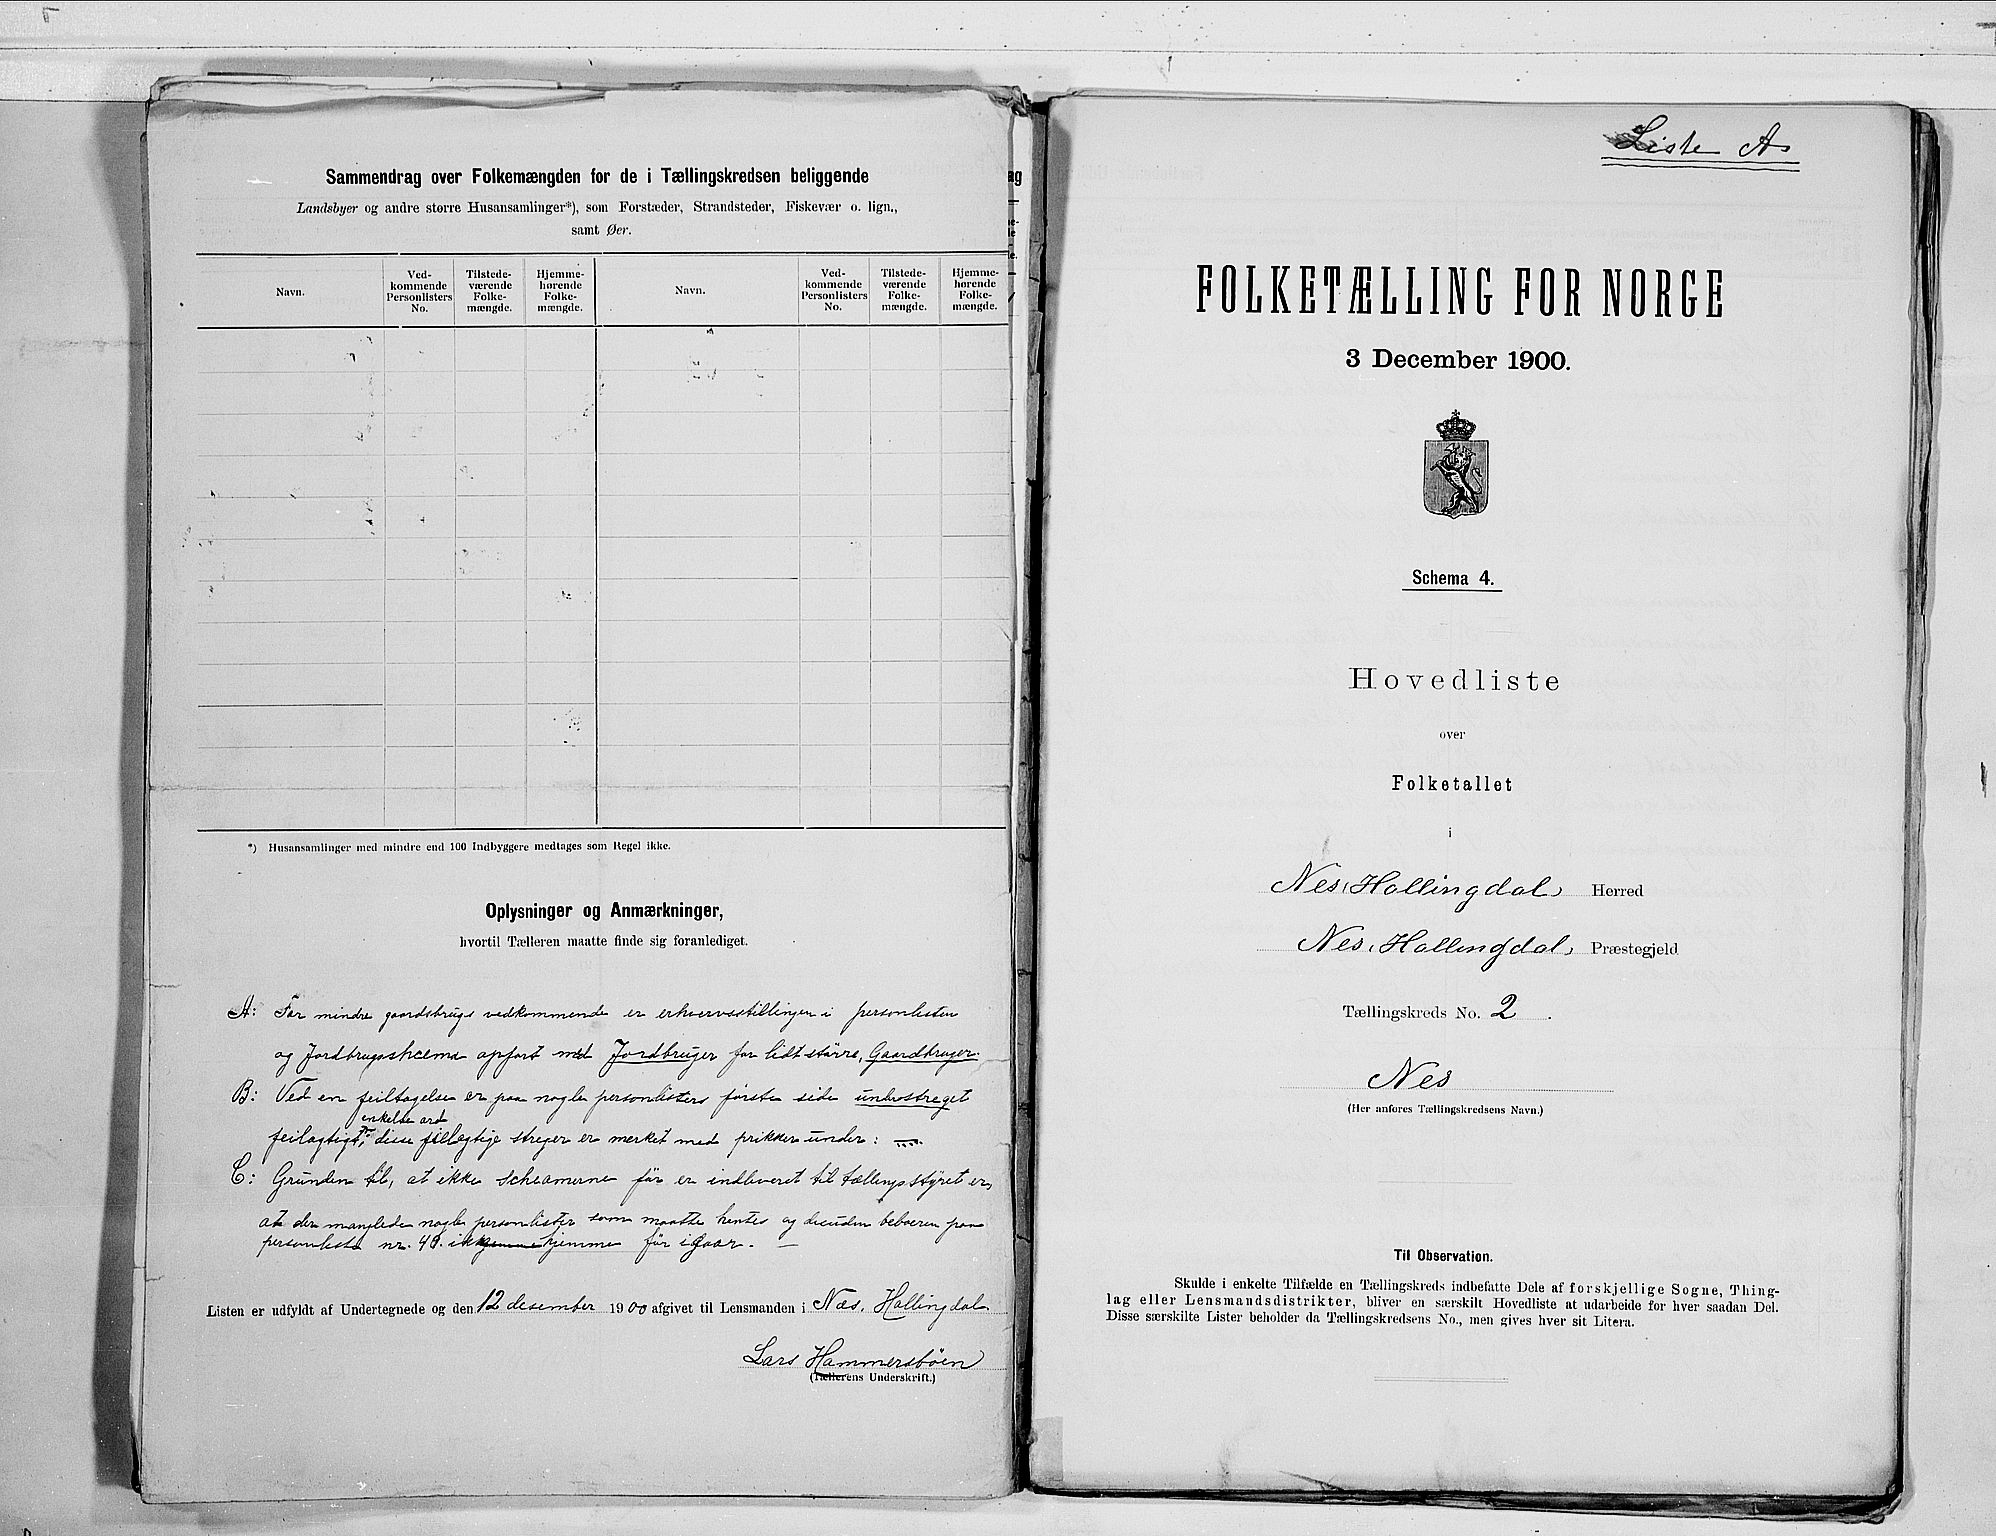 Sammendrag over Folkemængden for de i Tællingskredsen beliggende
Landsbyer og andre større Husansamlinger*), som Forstæder, Strandsteder, Fiskevær o. lign.,
samt Øer.
Navn.
Ved-
kommende
Personlisters
No.
Tilstede-
værende
Folke-
mængde.
Hjemme-
hørende
Folke-
mængde.
Navn.
Ved-
kommende
Personlisters
No.
Tilstede-
værende
Folke-
mængde.
Hjemme-
hørende
Folke-
mængde.
*) Husansamlinger med mindre end 100 Indbyggere medtages som Regel ikke.
Oplysninger og Anmærkninger,
hvortil Tælleren maatte finde sig foranlediget.
A: For mindre gaardsbrugs vedkommende er erhvervsstillingen i personlisten
og Jordbrugsskema opført med Jordbruger for lidt större, Gaardbruger.
B: Ved en feiltagelse er paa nogle personlisters første side understreget
enkelte ord
feilagtigt, disse feilagtige streger er merket med prikker under:
C: Grunden til, at ikke scheamerne før er indleveret til tællingsstyret er,
at der manglede nogle personlister som maatte hentes og desuden beboeren paa
personliste nr. 40. ikke hjemme før igaar. —
Listen er udfyldt af Undertegnede og den 12 desember 1900 afgivet til Lensmanden i Næs, Hallingdal
Lars Hammersbøen
(Tællerens Underskrift.)
Liste A.
FOLKETÆLLING FOR NORGE
3 December 1900.
Schema 4.
Hovedliste
over
Folketallet
i
Nes, Hallingdal, Herred
Nes, Hallingdal, Præstegjeld
Tællingskreds No. 2.
Nes
(Her anføres Tællingskredsens Navn.)
Til Observation.
Skulde i enkelte Tilfælde en Tællingskreds indbefatte Dele af forskjellige Sogne, Thing-
lag eller Lensmandsdistrikter, bliver en særskilt Hovedliste at udarbeide for hver saadan Del.
Disse særskilte Lister beholder da Tællingskredsens No., men gives hver sit Litera.